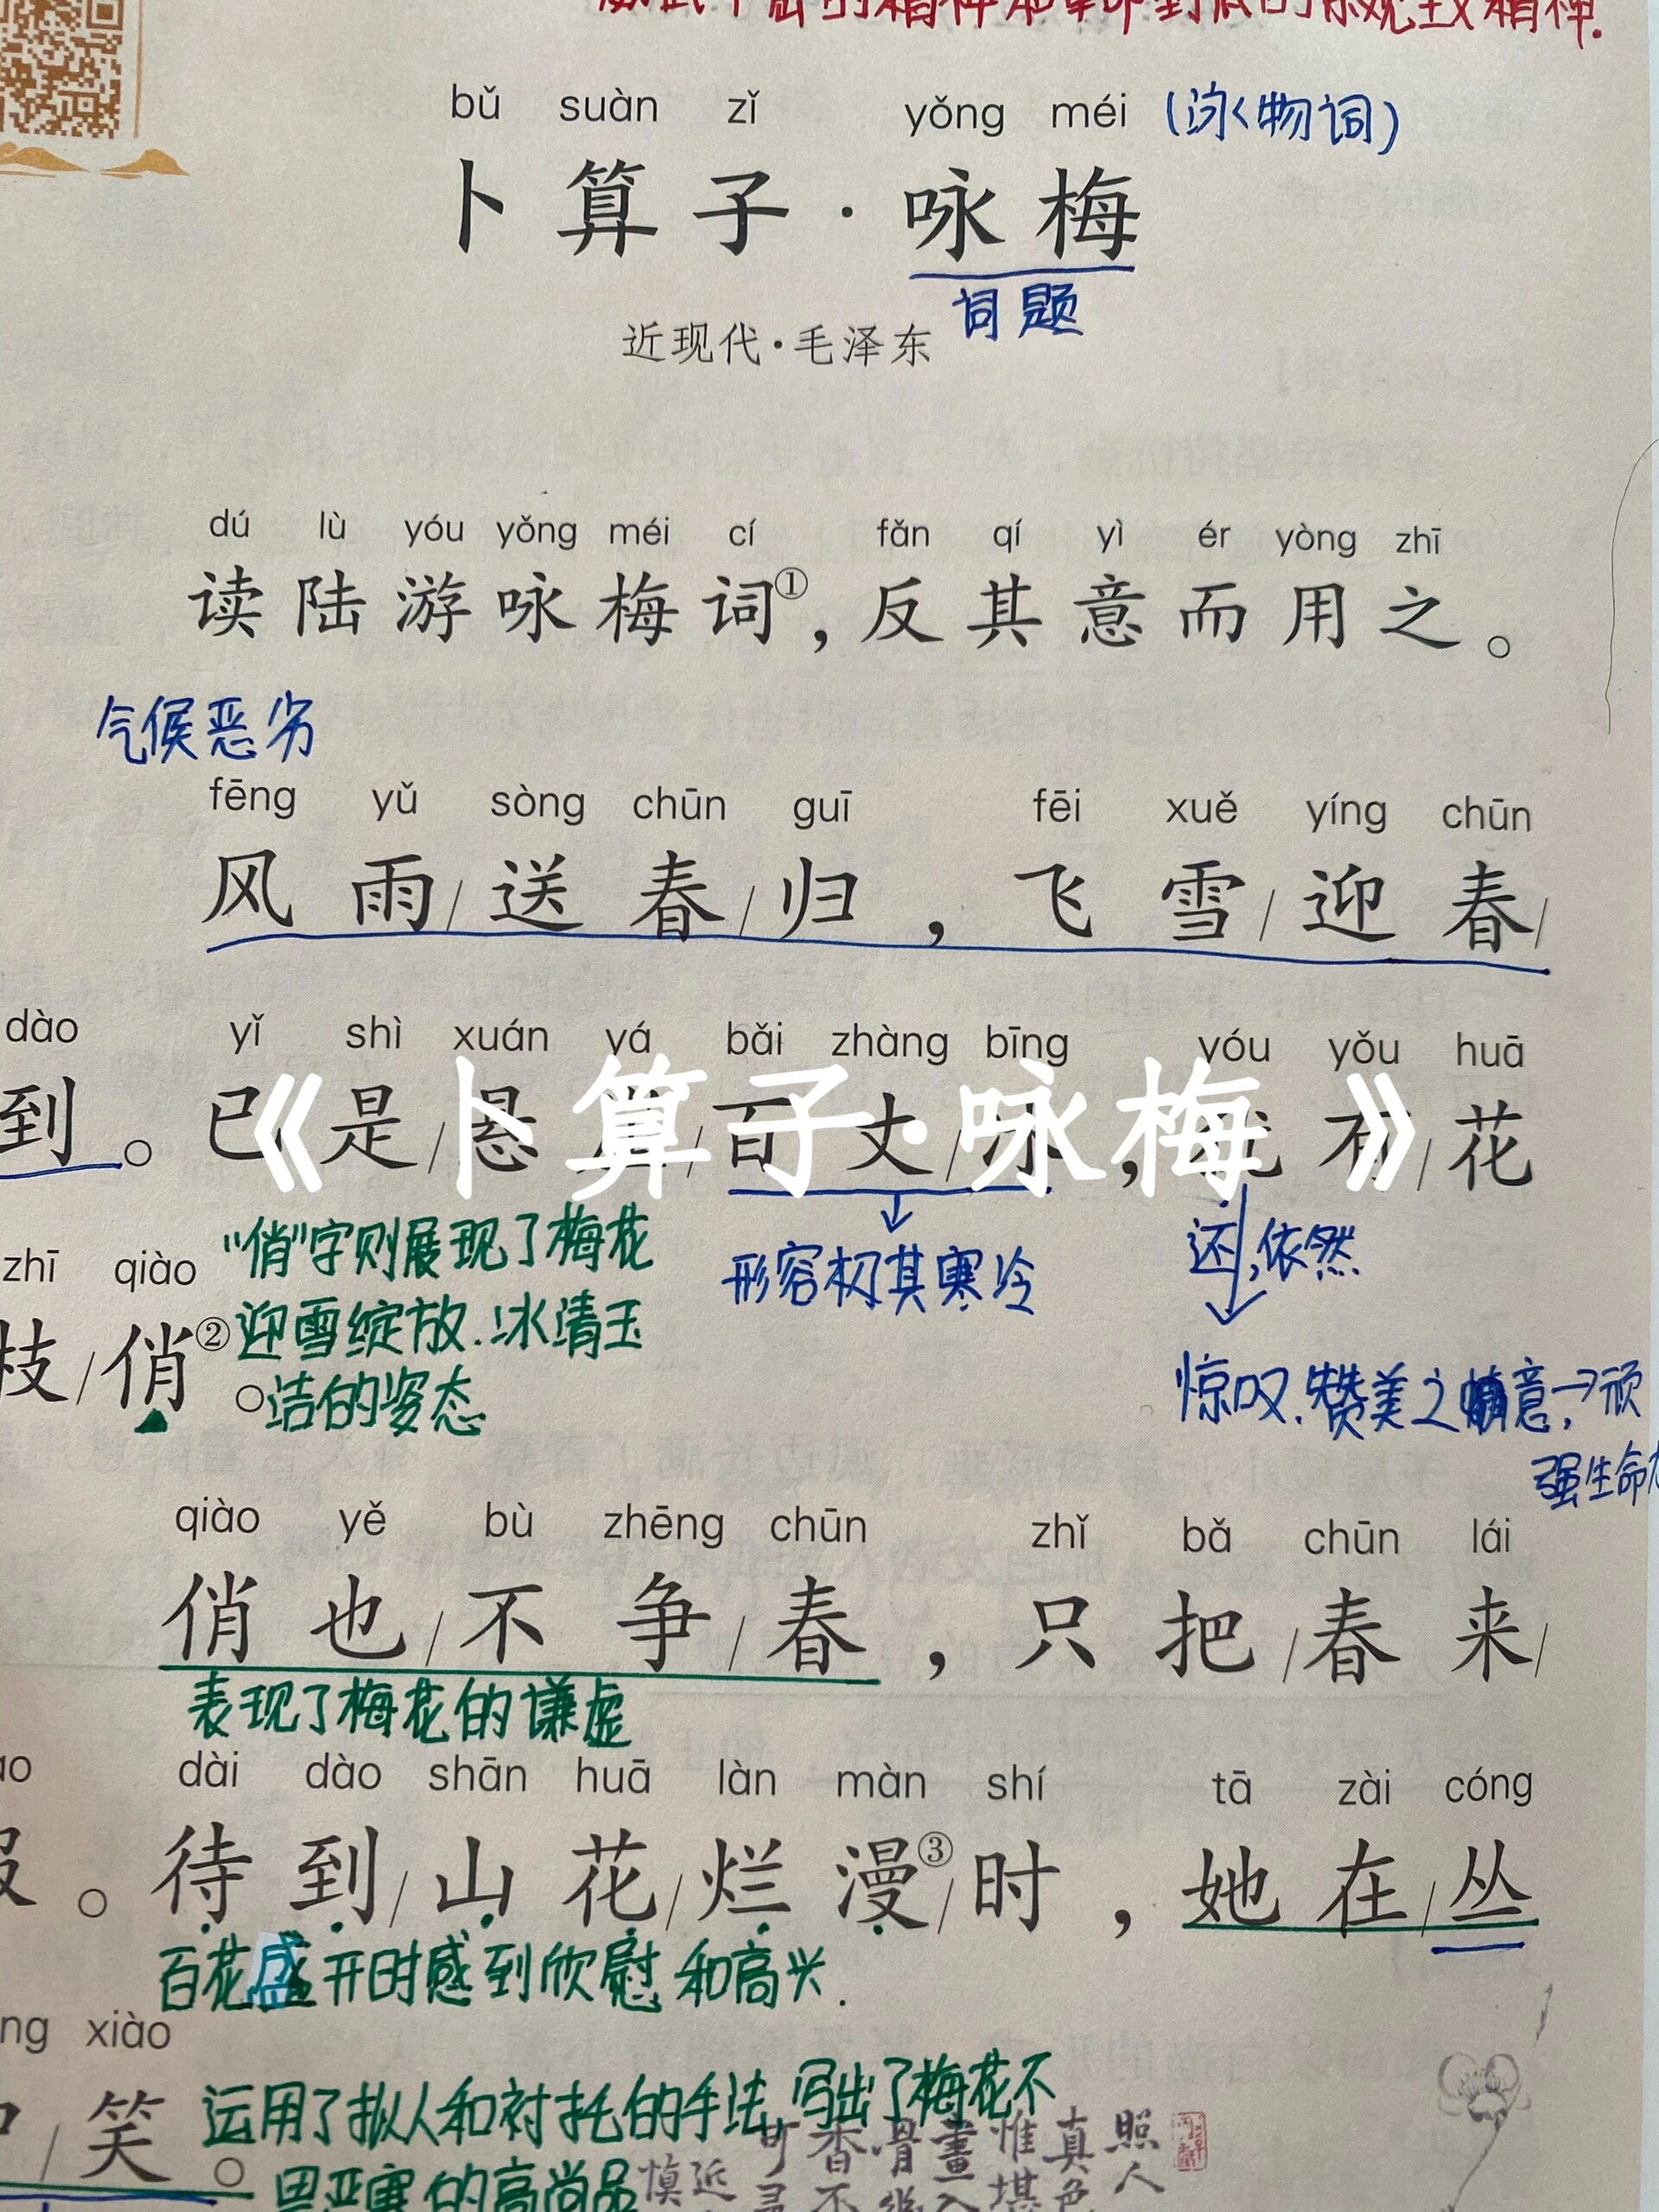 精神和革命到底的乐观主义精神.
bǔ suàn zǐ yǒng méi (咏物词)
卜算子·咏梅
词题
近现代·毛泽东
dú lù yóu yǒng méi cí fǎn qí yì ér yòng zhī
读陆游咏梅词①,反其意而用之。
气候恶劣
fēng yǔ sòng chūn guī fēi xuě yíng chūn
风雨/送春/归,飞雪/迎春/
dào yǐ shì xuán yá bǎi zhàng bīng yóu yǒu huā
到。已是/悬崖/百丈/冰,犹有/花
《卜算子·咏梅》
还,依然
形容极其寒冷
惊叹.赞美之情意,→顽
强生命
zhī qiào
枝/俏②。
“俏”字则展现了梅花
迎雪绽放.冰清玉
洁的姿态
qiào yě bù zhēng chūn zhǐ bǎ chūn lái
俏也/不争/春,只把/春来/
表现了梅花的谦虚
dài dào shān huā làn màn shí tā zài cóng
报。待到/山花/烂漫③/时,她在/丛
百花盛开时感到欣慰和高兴.
xiào
中/笑。
运用了拟人和衬托的手法,写出了梅花不
畏严寒的高尚品
照人
真色
惟堪
畫入
骨
香不
可寻
近